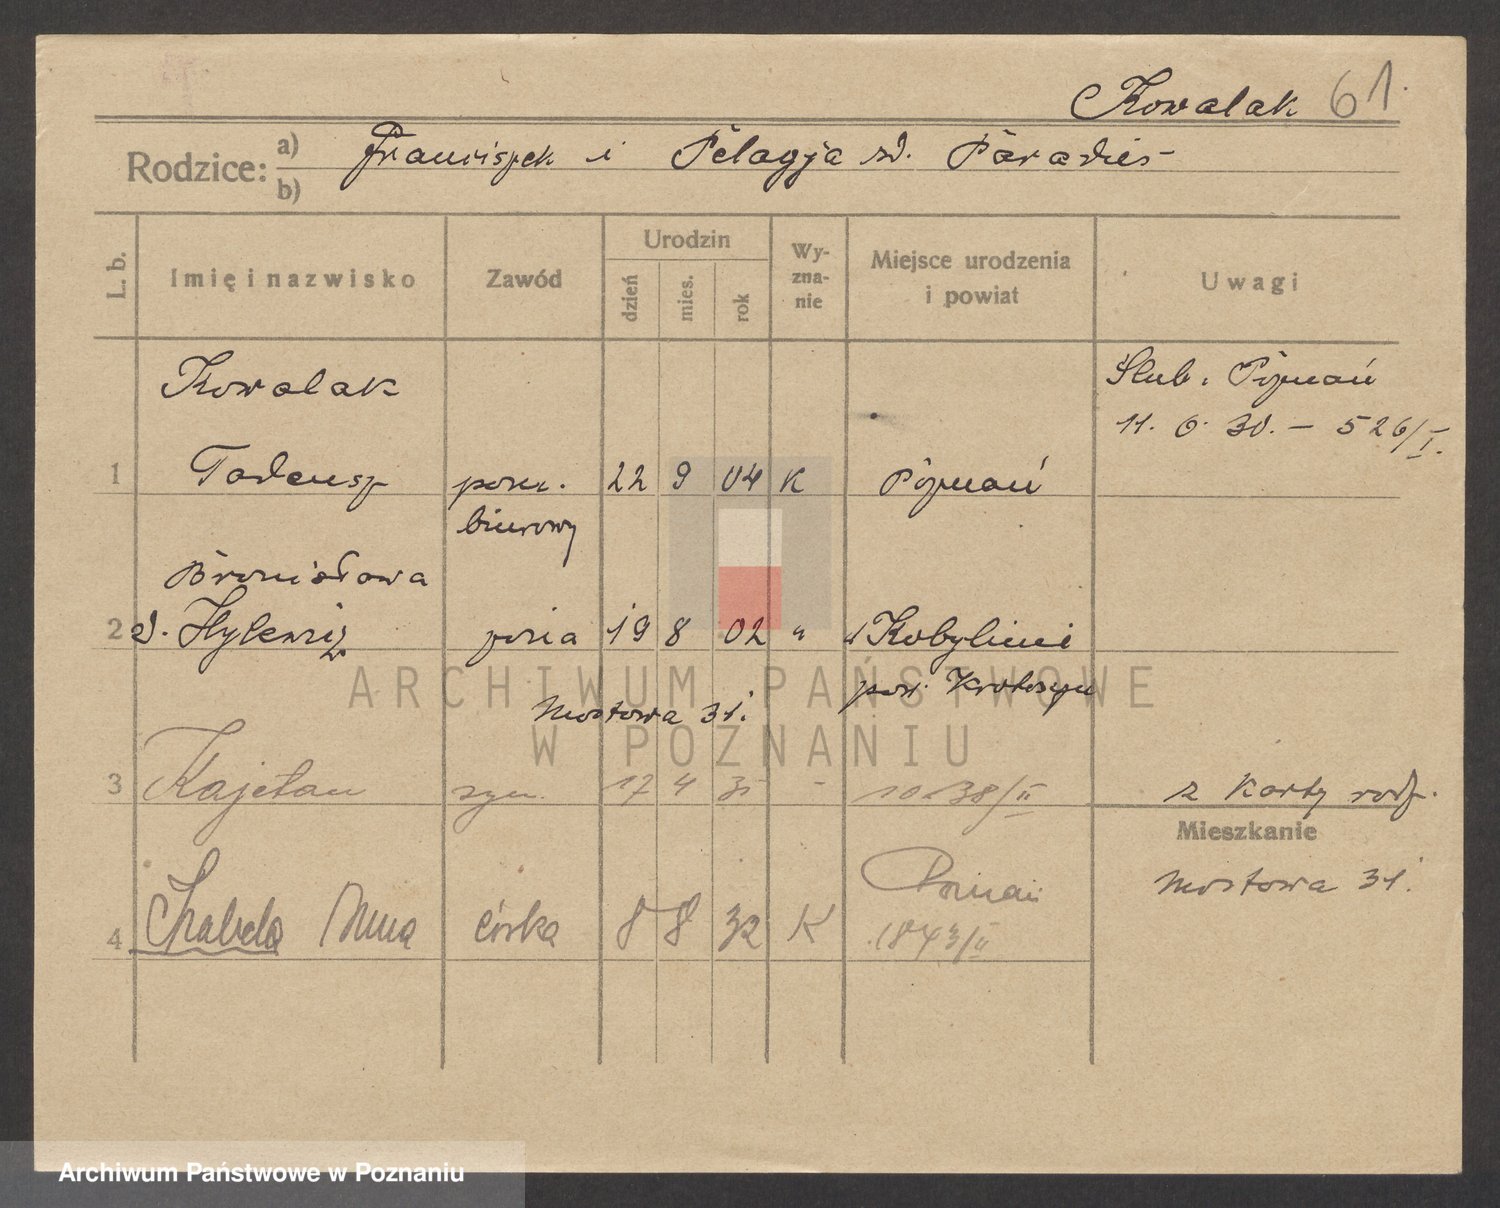 Kowalak 61.
Rodzice: a) b) Franciszek i Pelagja zd. Paradies
L. b. Imię i nazwisko Zawód Urodzin dzień mies. rok Wy-zna-nie Miejsce urodzenia i powiat Uwagi
Kowalak Ślub. Poznań
11. 6. 30. — 526/I.
1 Tadeusz pom. 22 9 04 K Poznań
biurowy
Bronisława
2 d. żona 19 8 02 " Kobylinie
pow. Krotoszyn
Mostowa 31.
3 Kajetan syn 17 4 31 - 1038/II z karty rodz.
Mieszkanie
Mostowa 31.
Poznań
4 Izabela Anna córka 8 8 32 K 1843/II
ARCHIWUM PAŃSTWOWE
W POZNANIU
Archiwum Państwowe w Poznaniu